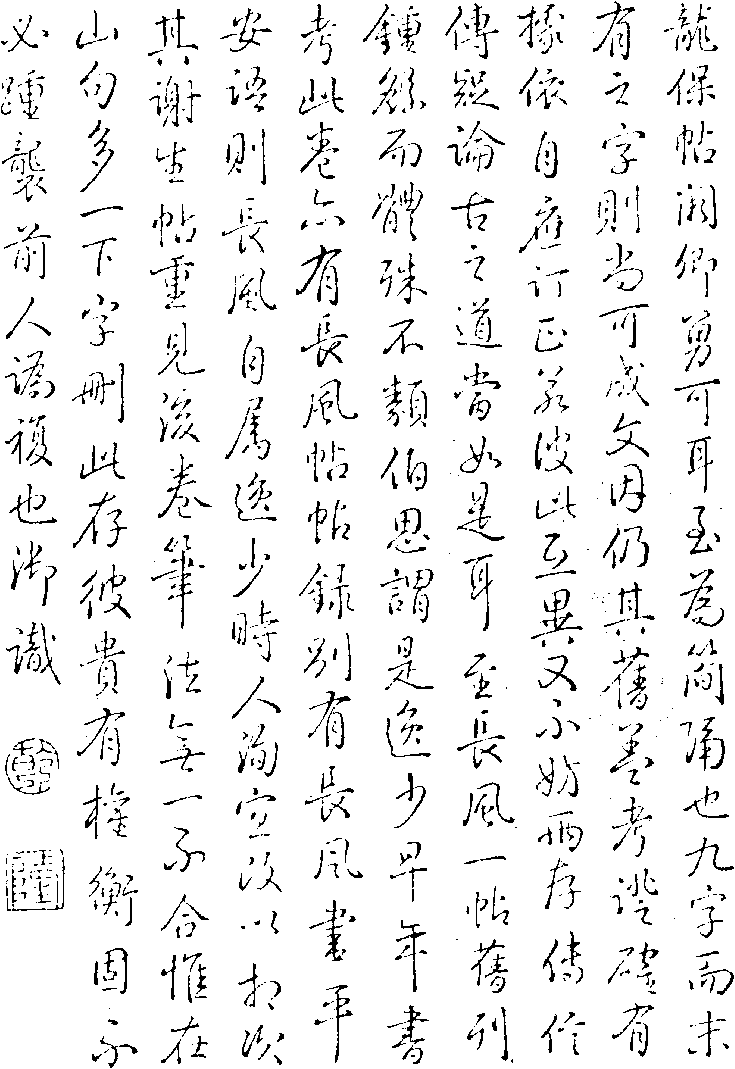 龍保帖闕卿勇可耳至為簡隔也九字而末
有之字則尚可成文因仍其舊蓋考證確有
據依自應訂正若彼此互異又不妨兩存傳信
傳疑論古之道當如是耳至長風一帖舊列
鍾繇而體殊不類伯思謂是逸少早年書
考此卷亦有長風帖帖錄別有長風書平
安語則長風自屬逸少時人詢宜改以相次
其謝生帖重見後卷筆法無一不合惟在
山句多一下字刪此存彼貴有權衡固不
必踵襲前人譌複也御識